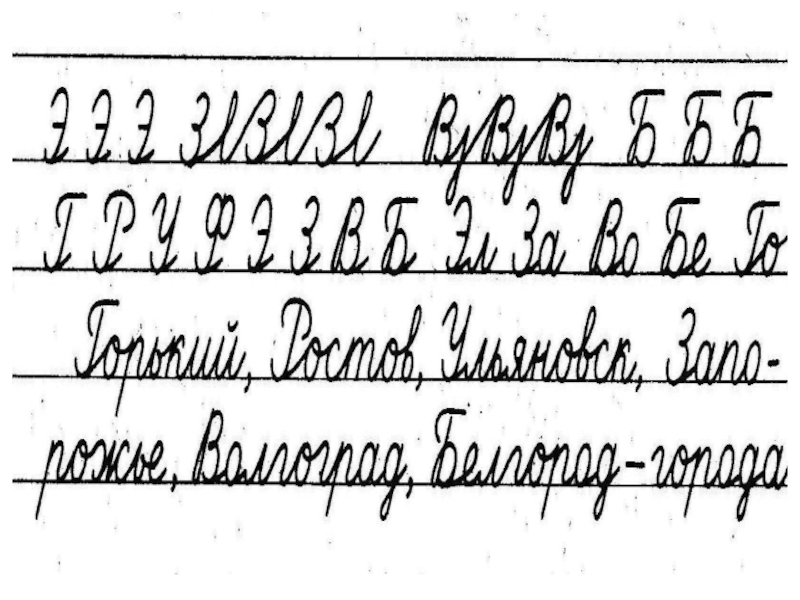 Э Э Э ЗlЗlЗl ВjВjВj Б Б Б
Г Р У Ф Э З В Б Эл За Во Бе Го
Горький, Ростов, Ульяновск, Запо-
рожье, Волгоград, Белгород-города